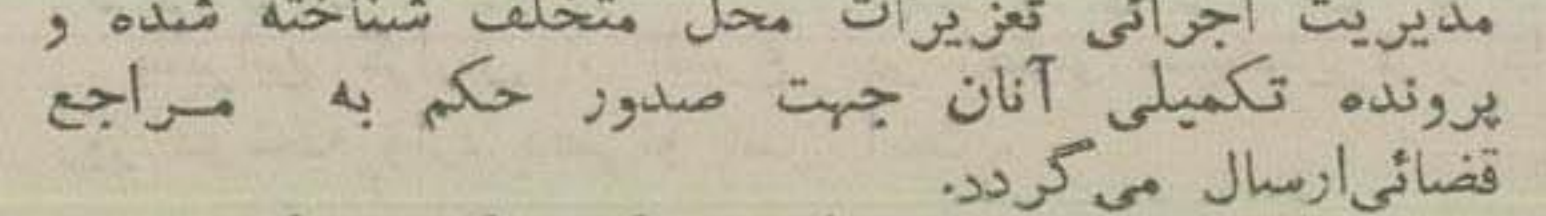 مدیریت اجرائی تعزیرات محل متخلف شناخته شده و
پرونده تکمیلی آنان جهت صدور حکم به مراجع
قضائی ارسال می گردد.